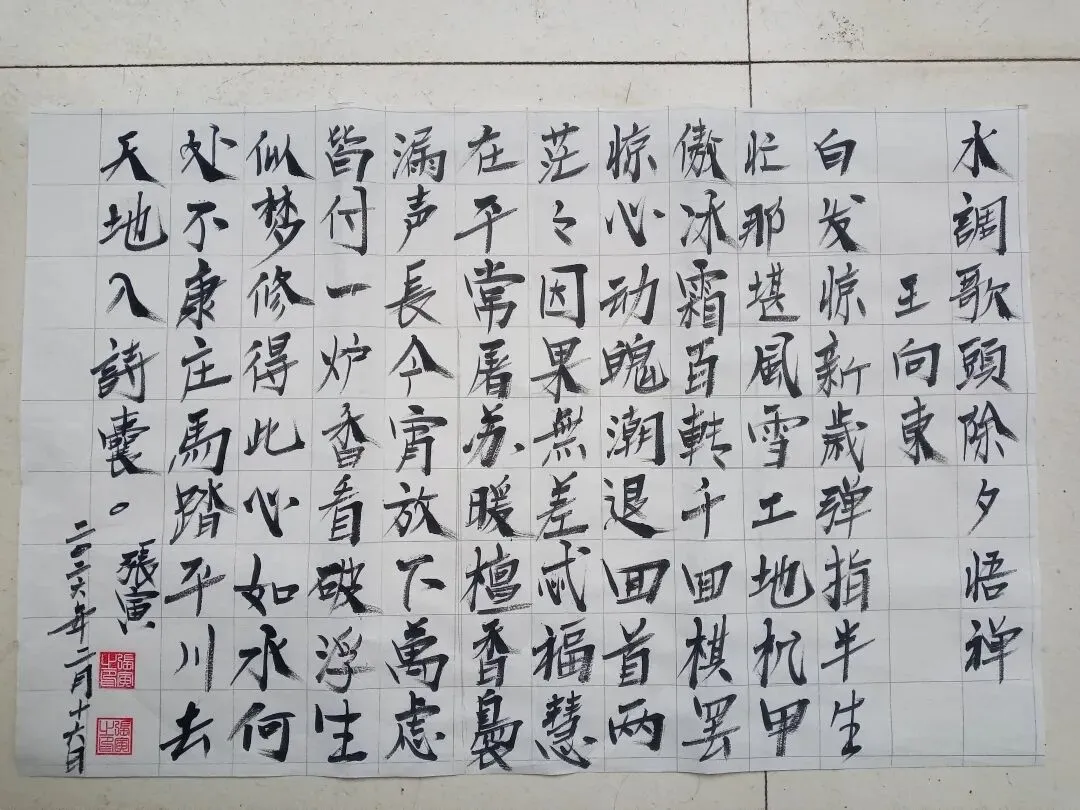 水調歌頭除夕悟禅
王向東
白发惊新歲弹指半生
忙那堪風雪工地机甲
傲冰霜百轉千回棋罢
惊心动魄潮退回首两
茫々因果無差忒福慧
在平常屠苏暖檀香裊
漏声長今宵放下萬虑
皆付一炉香看破浮生
似梦修得此心如水何
处不康庄馬踏平川去
天地入詩囊。
張寅
二〇二六年二月十六日
張寅之印
張寅之印